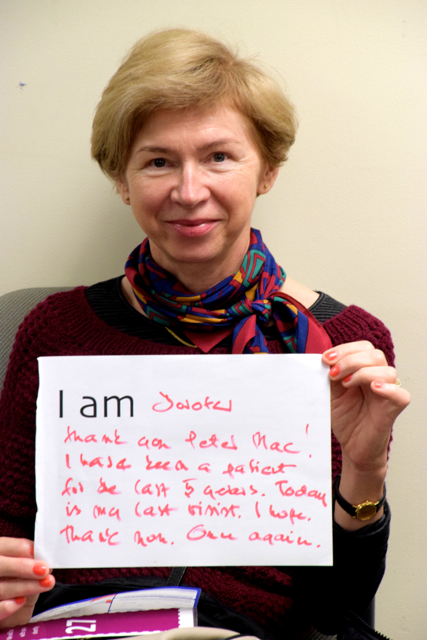 I am Dorota
Thank you Peter Mac!
I have been a patient
for the last 5 years. Today
is my last visist. I hope.
Thank you. Once again.
27